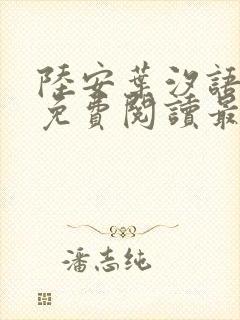 陸安葉汐語
免費閱讀最
潘志純